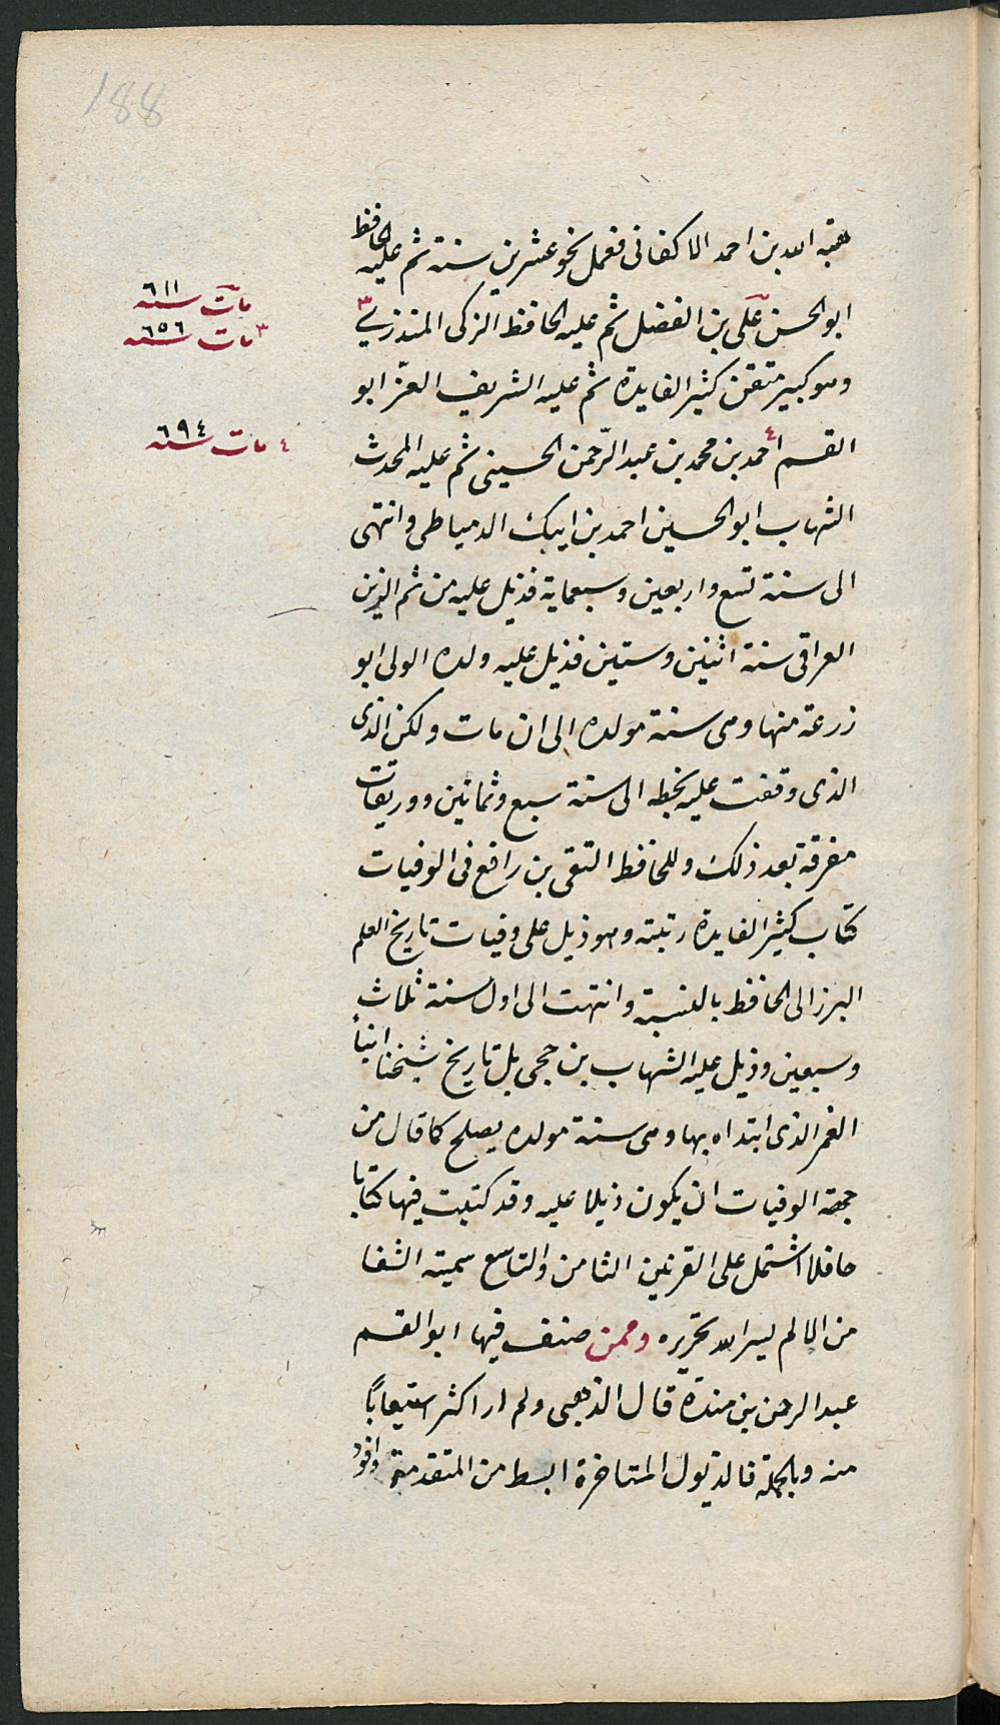 188
هبة الله بن احمد الاكفانى فعمل نحو عشرين سنة ثم عليه الحافظ
ابو الحسن على بن الفضل ثم عليه الحافظ الزكى المنذرى ٣
مات سنه ٦١١
٣ مات سنه ٦٥٦
وهو كبير متقن كثير الفايدة ثم عليه الشريف العزّ ابو
القسم ٤ أحمد بن محمد بن عبد الرّحمن الحسينى ثم عليه المحدث
٤ مات سنه ٦٩٤
الشهاب ابو الحسين احمد بن ايبك الدمياطى وانتهى
الى سنة تسع واربعين وسبعماية فذيل عليه من ثم الزين
العراقى سنة اثنين وستين فذيل عليه ولده الولى ابو
زرعة منها وهى سنة مولده الى ان مات ولكن الذى
الذى وقفت عليه بخطه الى سنة سبع وثمانين ووريقات
مفرقة بعد ذلك وللحافظ التقى بن رافع فى الوفيات
كتاب كثير الفايدة رتبته وهو ذيل على وفيات تاريخ العلم
البرزالى الحافظ بالنسبة وانتهت الى اول سنة ثلاث
وسبعين وذيل عليه الشهاب بن حجى بل تاريخ شيخنا انبأ
الغمر الذى ابتداه بها وهى سنة مولده يصلح كما قال من
جهة الوفيات ان يكون ذيلا عليه وقد كتبت فيها كتابا
حافلا اشتمل على القرنين الثامن والتاسع سميته الشفا
من الالم يسر الله تحريره وممن صنف فيها ابو القسم
عبد الرحمن بن مندة قال الذهبى ولم ار اكثر استيعابًا
منه وبالجملة فالذيول المتاخرة ابسط من المتقدمة وافود